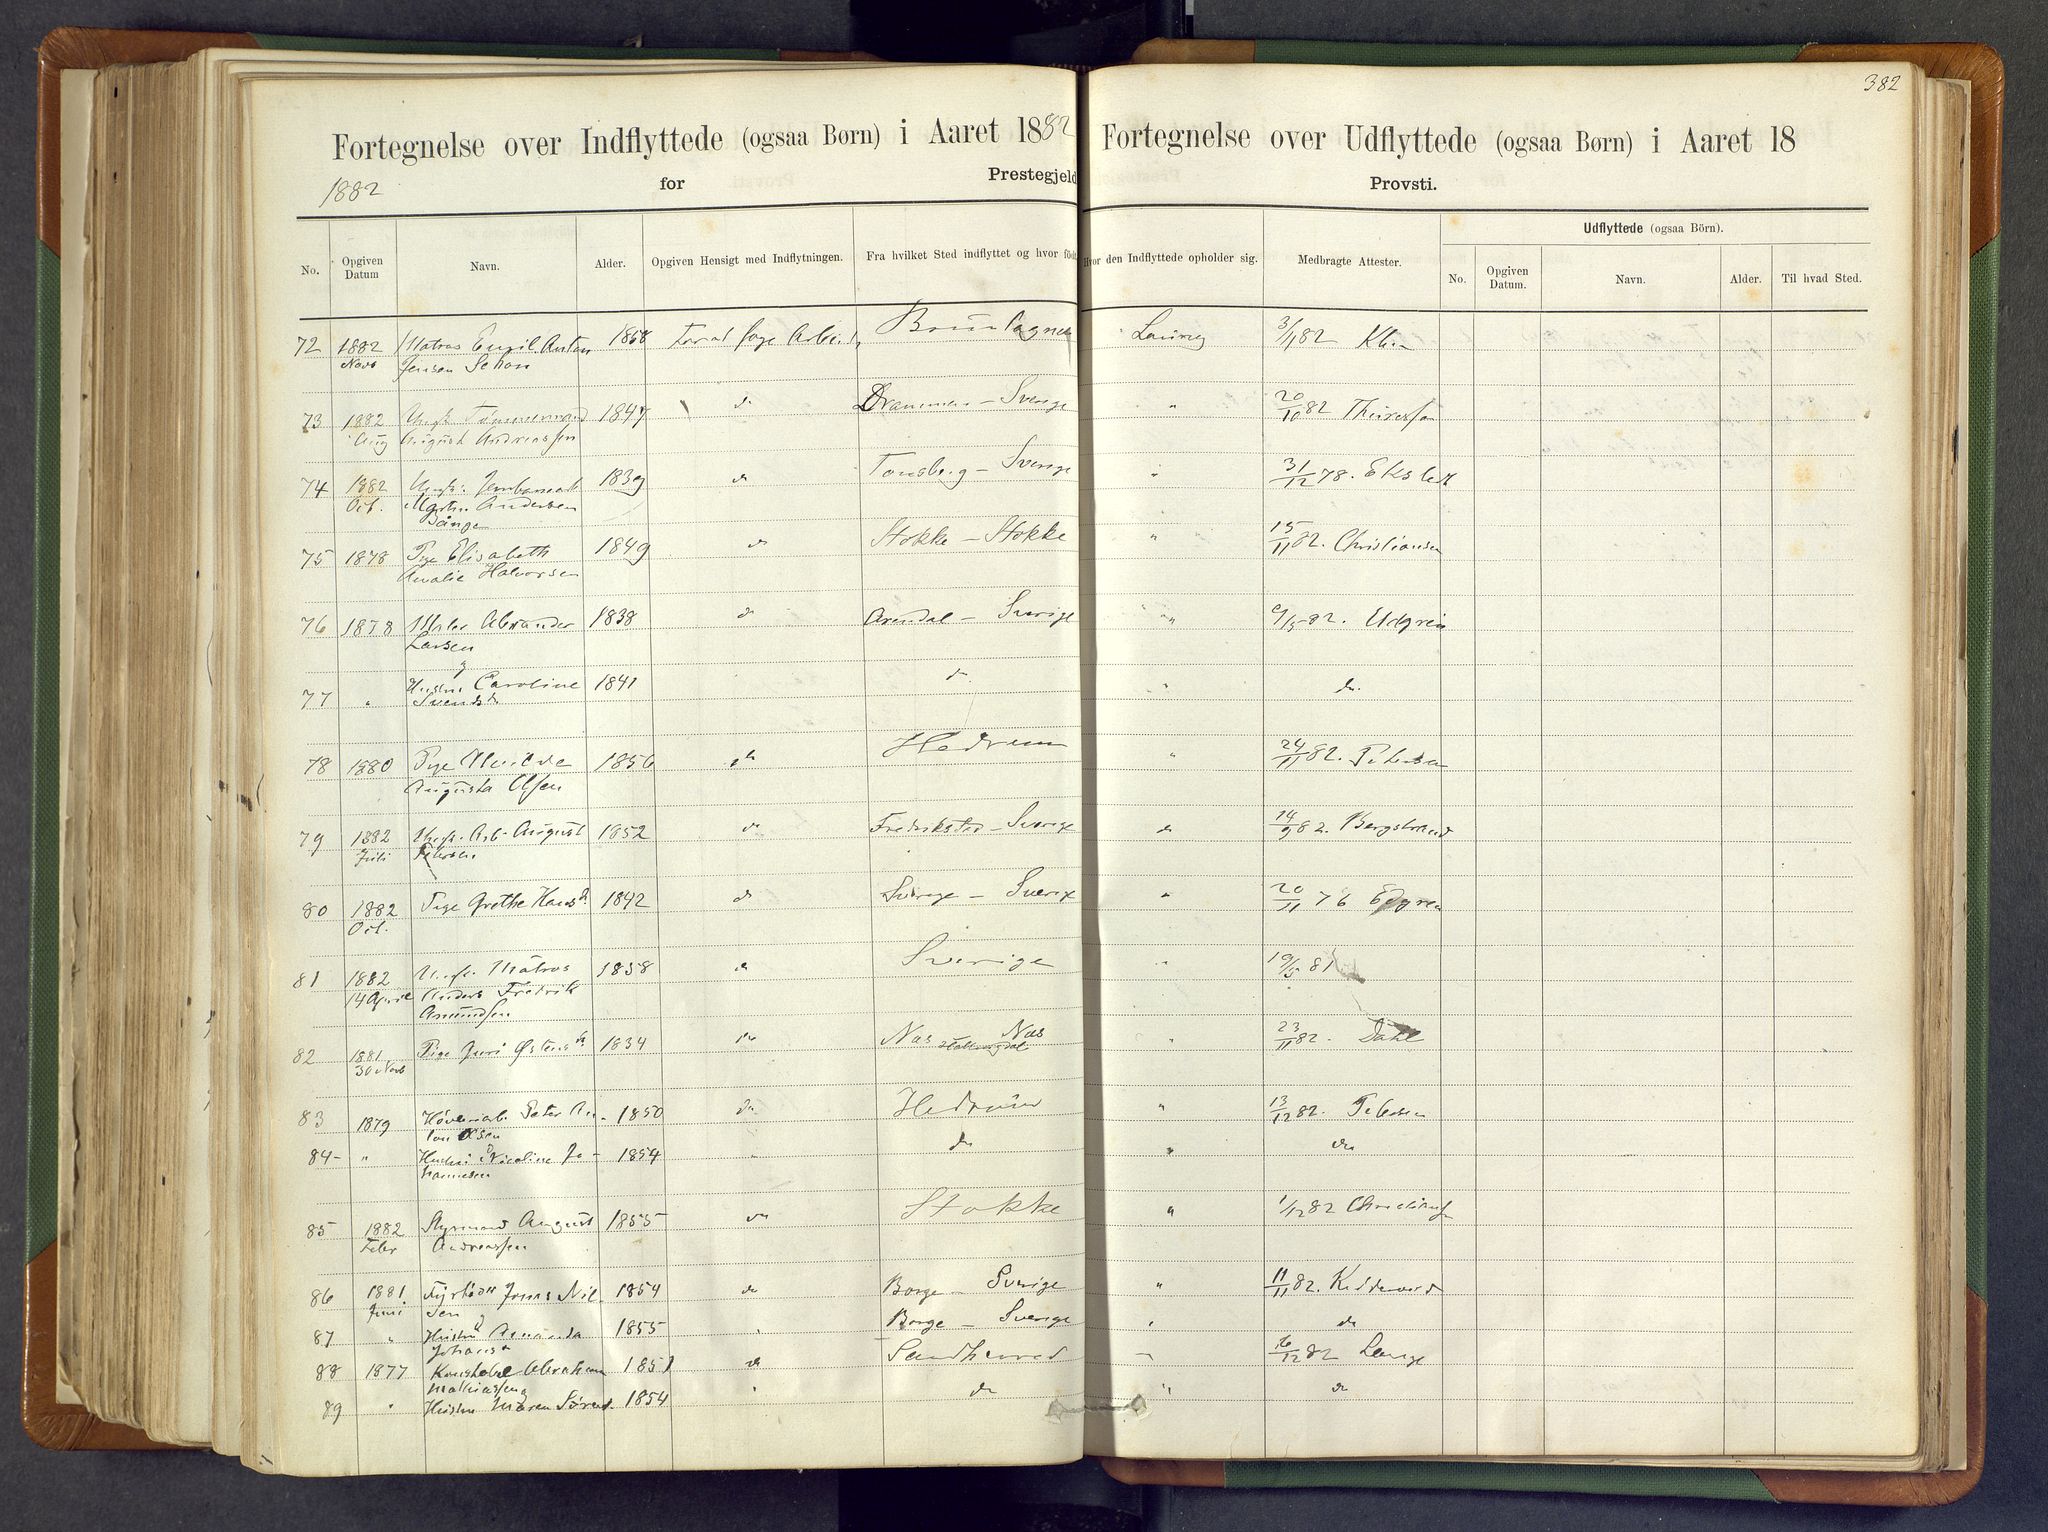 382
Fortegnelse over Indflyttede (ogsaa Børn) i Aaret 1882
Fortegnelse over Udflyttede (ogsaa Børn) i Aaret 18
1882 for Prestegjeld
Provsti.
No. Opgiven Datum Navn. Alder. Opgiven Hensigt med Indflytningen. Fra hvilket Sted indflyttet og hvor född. Hvor den Indflyttede opholder sig. Medbragte Attester.
Udflyttede (ogsaa Börn).
No. Opgiven Datum. Navn. Alder. Til hvad Sted.
72 1882 Matros Emil Anton 1858 For at søge Laurvig 3/11 82
Novb Jensen
73 1882 Ungk. Tømmermand 1847 do Drammen – Sverige " 20/10 82
Aug August Andreassen
74 1882 Ungk. 1839 do Tonsberg – Sverige " 31/12 78. Ekstedt
Oct. Martin Andersen
75 1878 Pige Elisabeth 1849 do Stokke – Stokke " 15/11 82. Christiansen
Amalie Halvorsen
76 1878 Alexander 1838 do Arendal – Sverige "
Larsen
77 " Hustru Caroline 1841 do " do.
Svendsd
78 1880 Pige 1856 do Hedrum " 24/11 82. Petersen
Augusta Olsen
79 1882 Ungk. Arb. August 1852 do Fredriksstad – Sverige do 14/9 82. Bergstrand
Juli Petersen
80 1882 Pige Grethe Hansd. 1842 do Sverige – Sverige " 20/11 76 Edgren
Oct.
81 1882 Ungk. Matros 1858 do Sverige " 19/5 81
14 April Anders Fredrik
Amundsen
82 1881 Pige Juri Østensd. 1834 do Nas Nas " 23/11 82. Dahl
30 Novb Hallingdal
83 1879 Peter An- 1850 do Hedrum " 13/12 82. Petersen
ton Olsen
84 " Hustru Nicoline Jo- 1854 " do " do
hannesen
85 1882 Styrmand August 1855 do Stokke " 1/12 82 Christiansen
Febr Andreassen
86 1881 Fyrböder Jonas Nil- 1854 do Borge – Sverige " 11/11 82.
Juni sen
87 " Hustru Amanda 1855 " Borge – Sverige " do
Johansd
88 1877 Konstabel Abraham 1851 do Sandherred " 16/12 82 Lange
Mathiassen
89 " Hustru Maren Sörensd. 1854 " do " do